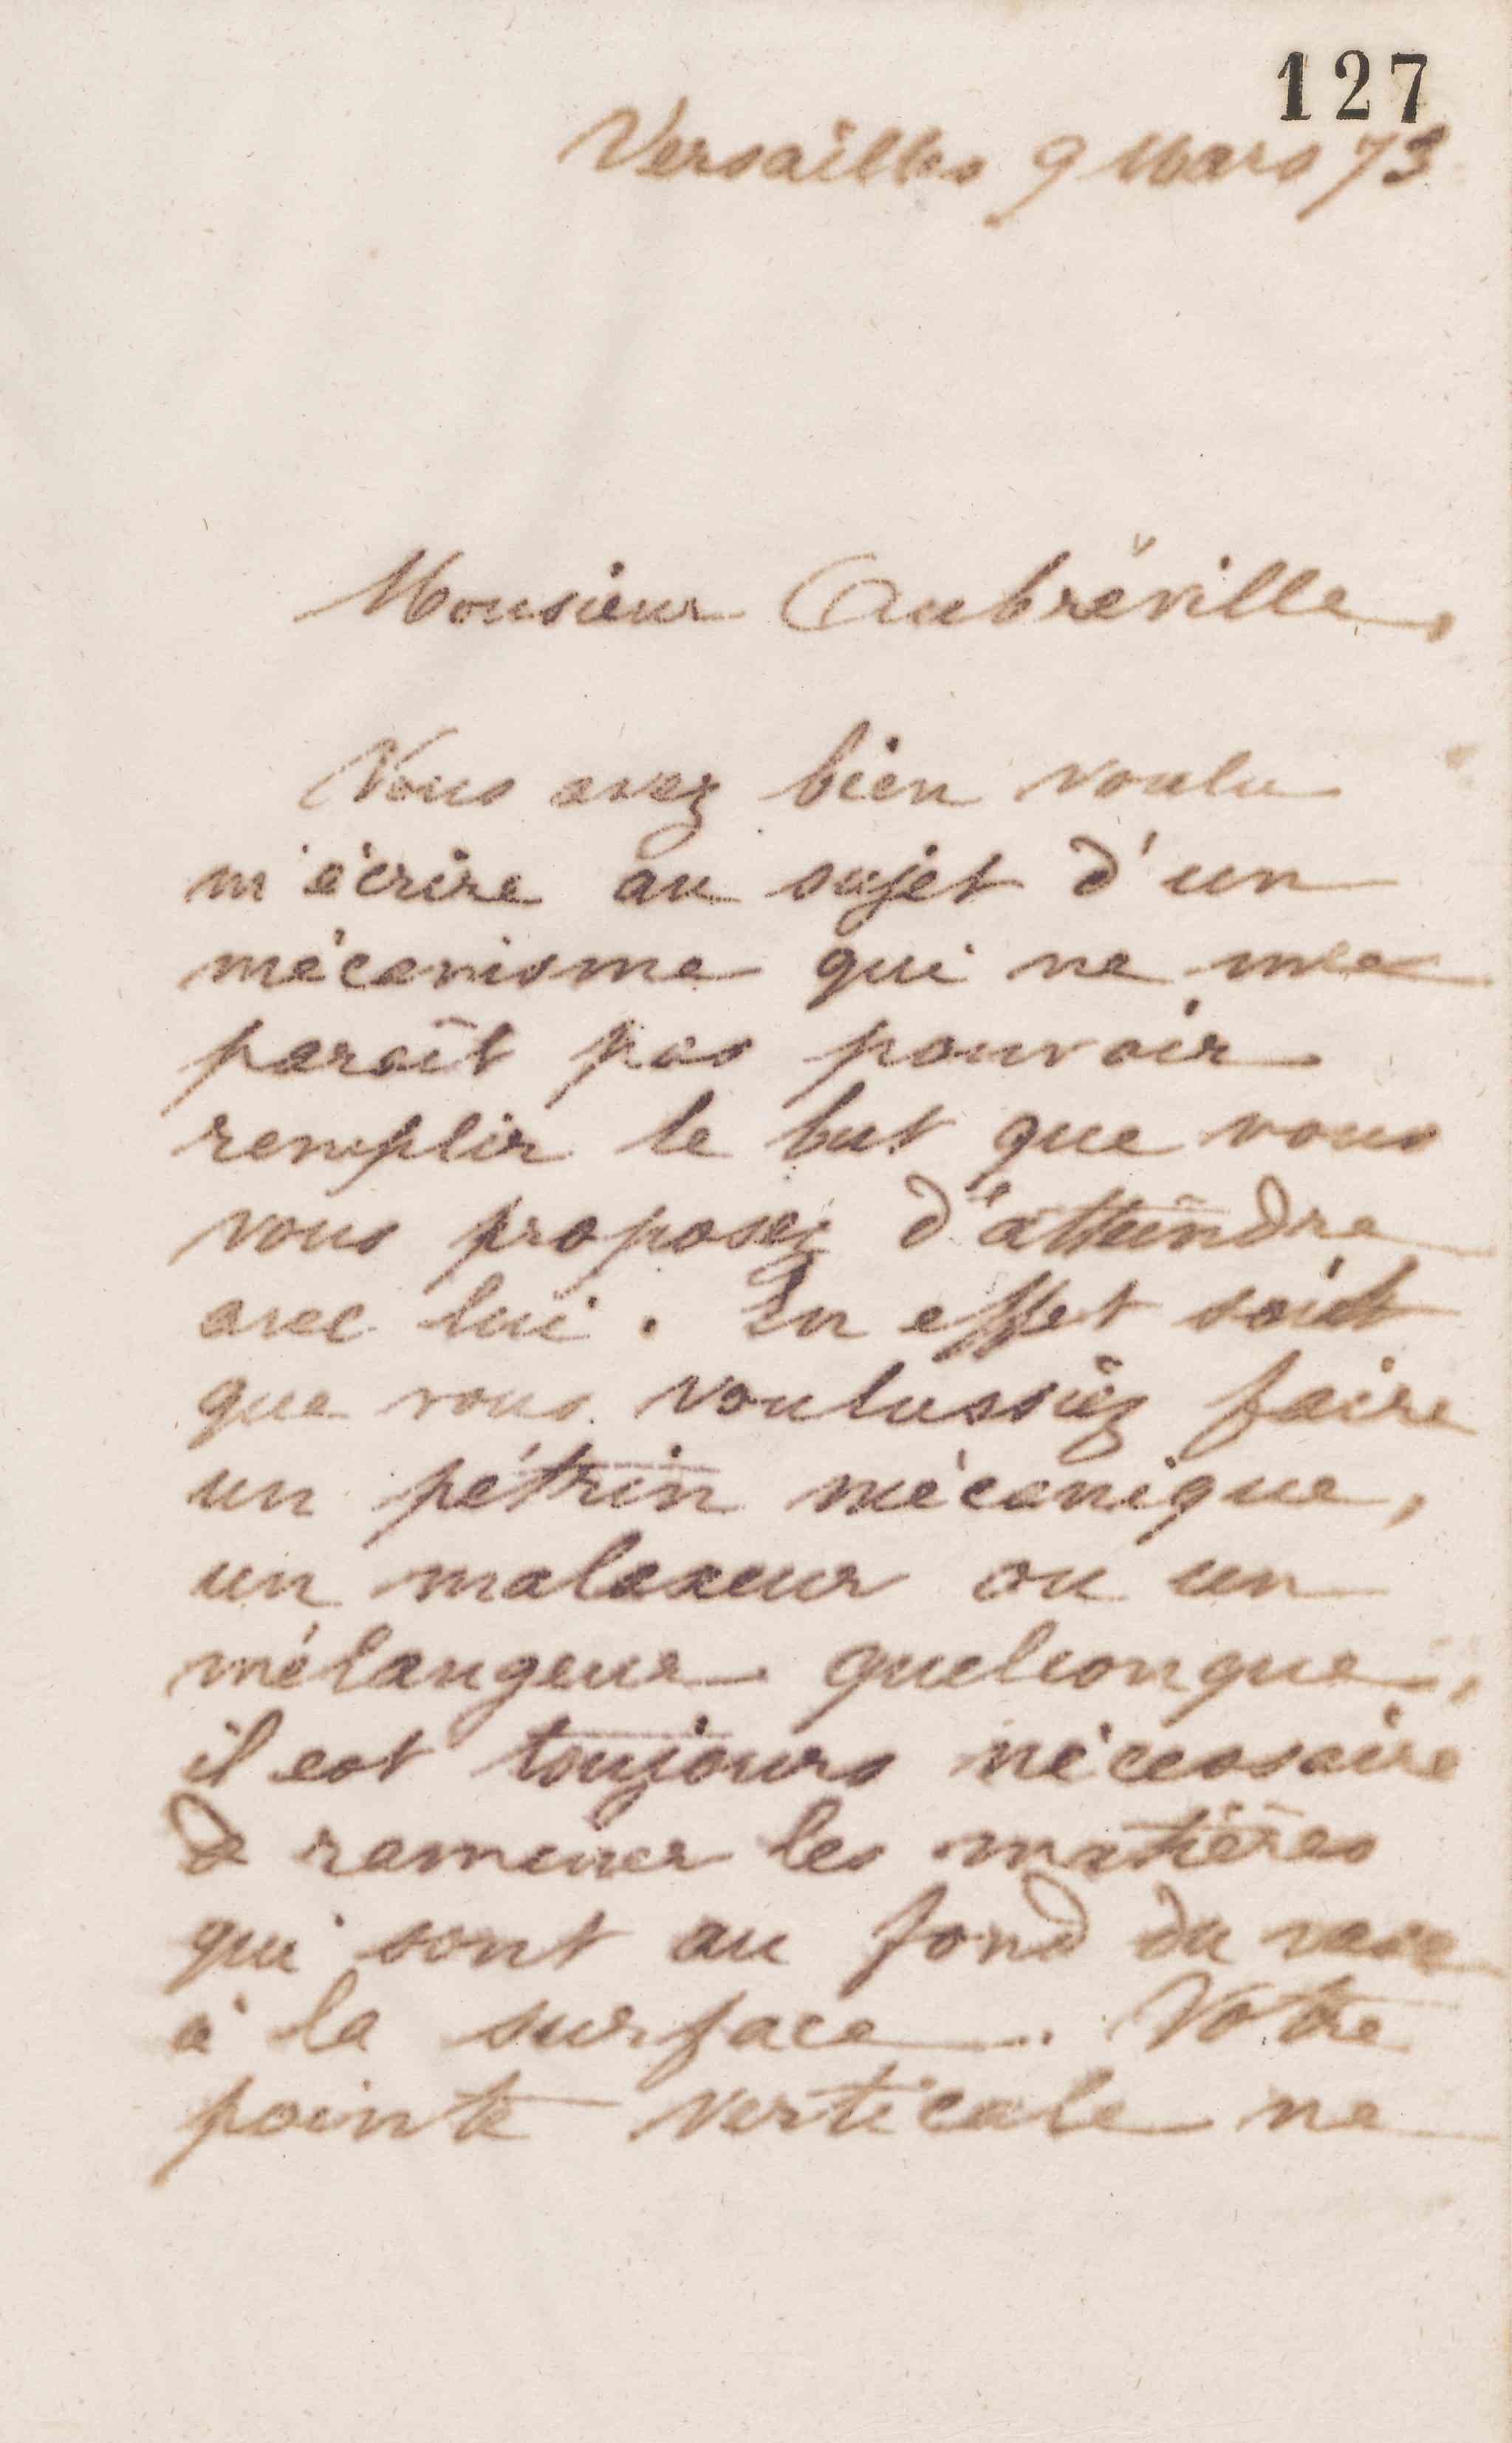 127
Versailles 9 Mars 73
Monsieur Aubréville,
Vous avez bien voulu
m'écrire au sujet d'un
mécanisme qui ne me
paraît pas pouvoir
remplir le but que vous
vous proposez d'atteindre
avec lui. En effet soit
que vous voulussiez faire
un pétrin mécanique,
un malaxeur ou un
mélangeur quelconque,
il est toujours nécessaire
de ramener les matières
qui sont au fond du vase
à la surface. Votre
pointe verticale ne